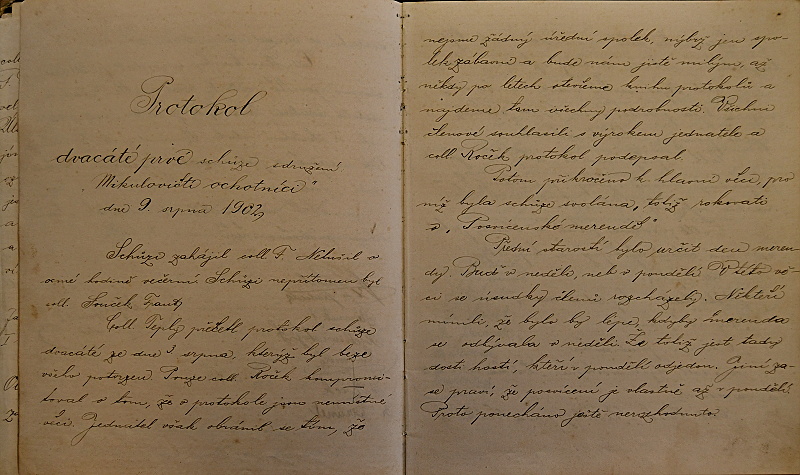 Protokol
dvacáté prvé schůze sdružení
„Mikulovičtí ochotníci"
dne 9. srpna 1902
Schůzi zahájil coll F. Netušil o
osmé hodině večerní. Schůzi nepřítomen byl
coll. Souček Frant.
Coll Teplý přečetl protokol schůze
dvacáté ze dne srpna, kterýž byl beze
všeho potvrzen. Pouze coll. Roček
toval o tom, že v protokole jsou nemístné
věci. Jednatel však obránil se tím, že
nejsme žádný úřední spolek, nýbrž jen spo-
lek zábavní a bude nám jistě milým, až
někdy po letech otevřeme knihu protokolů a
najdeme tam všechny podrobnosti. Všichni
členové souhlasili s výrokem jednatele a
coll Roček protokol podepsal.
Potom přikročeno k hlavní věci, pro
niž byla schůze svolána, totiž rokovati
o „Posvícenské merendě"
Přední starostí bylo určit den meren-
dy. Buď v neděli, neb v pondělí. V této vě-
ci se úsudky členů rozcházely. Někteří
mínili, že bylo by lépe, kdyby merenda
se odbývala v neděli. Že totiž jest tady
dosti hostí, kteří v pondělí odjedou. Jiní za-
se praví, že posvícení je vlastně až v pondělí.
Proto ponecháno ještě nerozhodnuto.